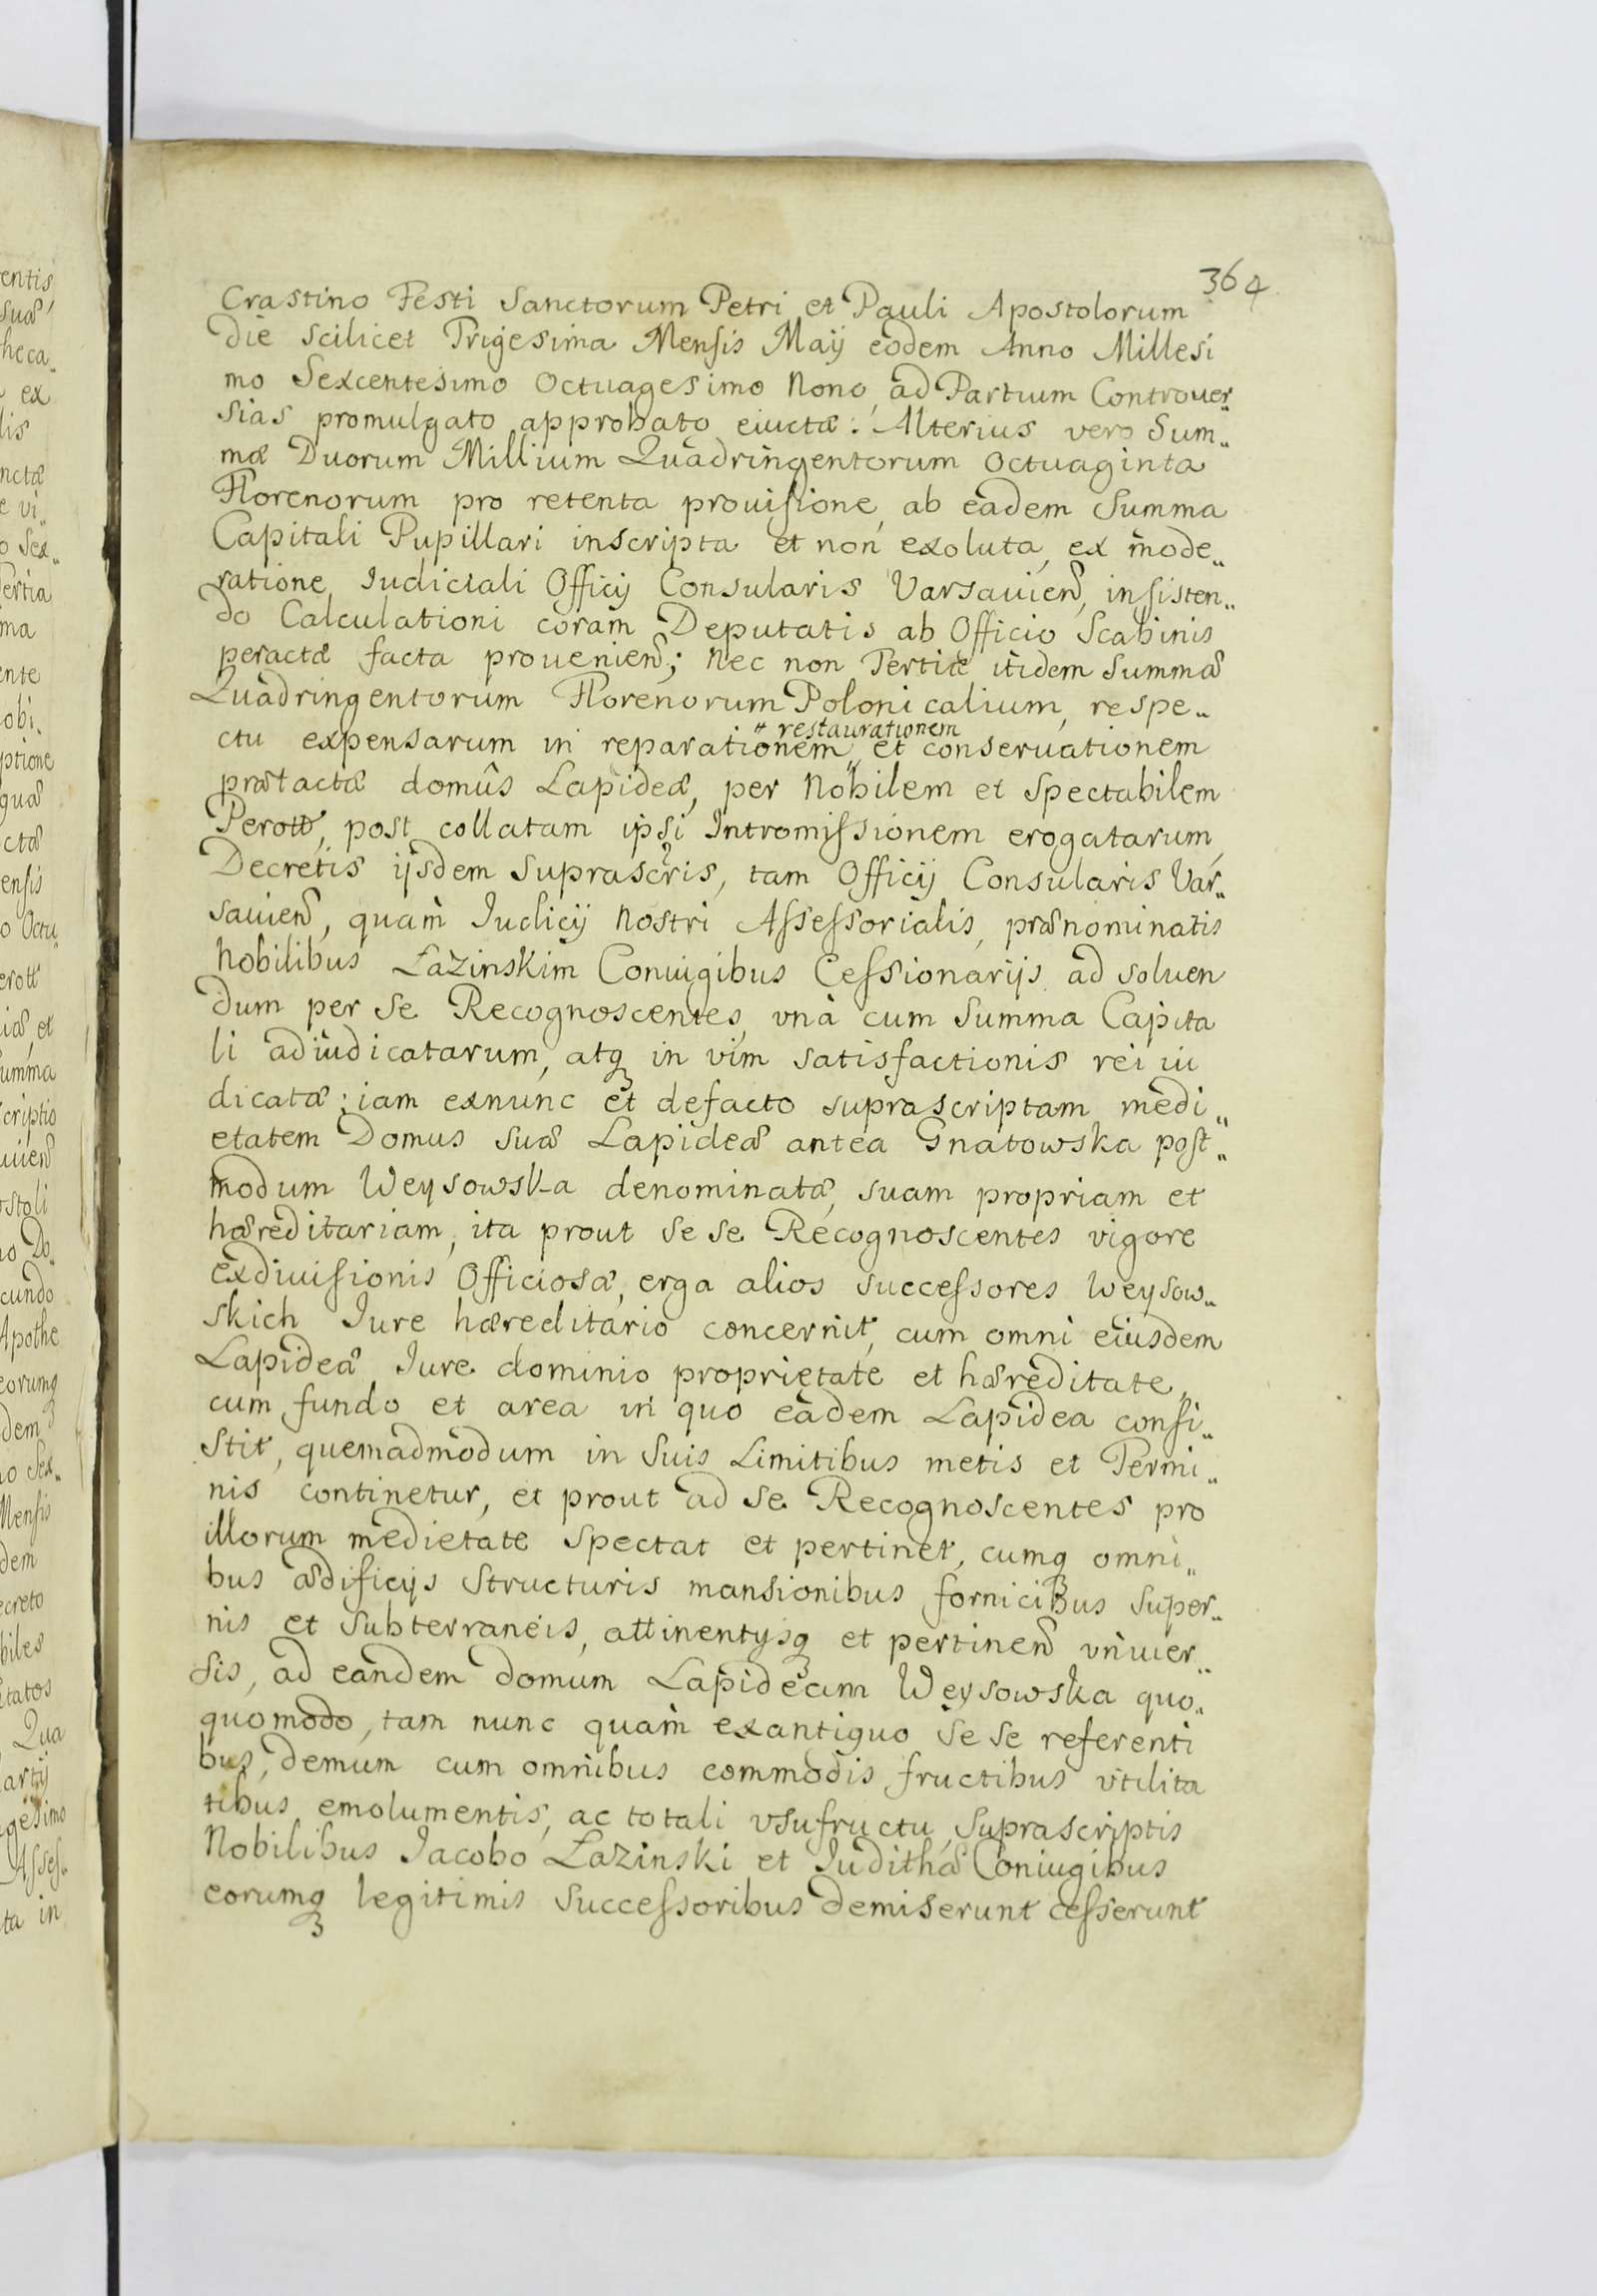 364
Crastino Festi Sanctorum Petri et Pauli Apostolorum
die scilicet Trigesima Mensis Maij eodem Anno Millesi
mo Sexcentesimo Octuagesimo Nono, ad Partium Controuer„
sias promulgato approbato eiuctæ: Alterius vero Sum„
mæ Duorum Millium Quadringentorum Octuaginta
Florenorum pro retenta prouisione, ab eadem Summa
Capitali Pupillari inscripta et non exoluta, ex mode„
ratione Iudiciali Officij Consularis Varsauien, insisten„
do Calculationi coram Deputatis ab Officio Scabinis
peractæ facta prouenien; Nec non Tertiæ itidem Summæ
Quadringentorum Florenorum Polonicalium, respe„
ctu expensarum in reparationem „ restaurationem „ et conseruationem
prætactæ domûs Lapideæ, per Nobilem et Spectabilem
Perott, post collatam ipsi Intromissionem erogatarum,
Decretis ijsdem suprascris, tam Officij Consularis Var„
sauien, quam Iudicij Nostri Assessorialis, prænominatis
Nobilibus Łazinskim Coniugibus Cessionarijs ad soluen
dum per se Recognoscentes, vnà cum Summa Capita
li adiudicatarum, atq in vim satisfactionis rei iu
dicatæ; iam exnunc et defacto suprascriptam medi„
etatem Domus suæ Lapideæ antea Gnatowska post„
modum Weysowska denominatæ, suam propriam et
hæreditariam, ita prout se se Recognoscentes vigore
exdiuisionis Officiosæ, erga alios successores Weysow„
skich Iure hæreditario concernit, cum omni eiusdem
Lapideæ Iure dominio proprietate et hæreditate,
cum fundo et area in quo eadem Lapidea consi„
stit, quemadmodum in suis Limitibus metis et Termi„
nis continetur, et prout ad se Recognoscentes pro
illorum medietate spectat et pertinet, cumq omni„
bus ædificijs structuris mansionibus fornicibus super„
nis et subterraneis, attinentysq et pertinen vniuer„
sis, ad eandem domum Lapideam Weysowska quo„
quomodo, tam nunc quam exantiquo se se referenti
bus, demum cum omnibus commodis fructibus vtilita
tibus emolumentis, ac totali vsufructu, suprascriptis
Nobilibus Iacobo Łazinski et Iudithæ Coniugibus
eorumq legitimis successoribus demiserunt cesserunt